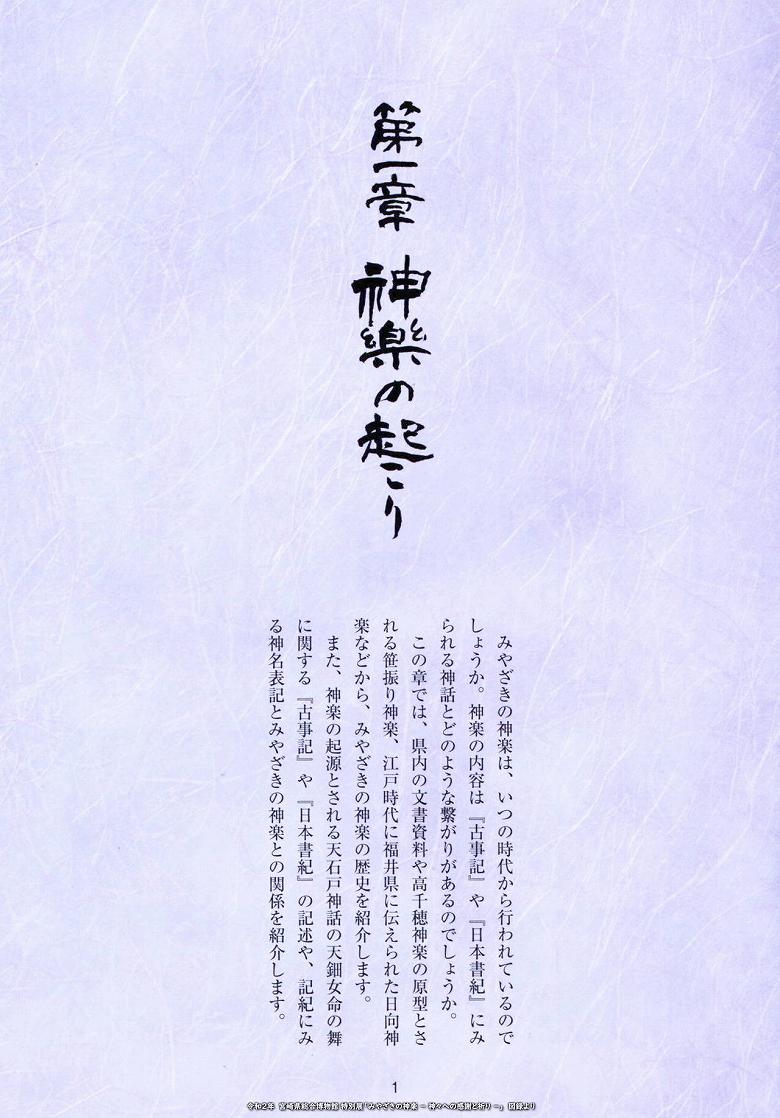 第一章 神樂の起こり
みやざきの神楽は、いつの時代から行われているので
しょうか。神楽の内容は『古事記』や『日本書紀』にみ
られる神話とどのような繋がりがあるのでしょうか。
この章では、県内の文書資料や高千穂神楽の原型とさ
れる笹振り神楽、江戸時代に福井県に伝えられた日向神
楽などから、みやざきの神楽の歴史を紹介します。
また、神楽の起源とされる天石戸神話の天鈿女命の舞
に関する『古事記』や『日本書紀』の記述や、記紀にみ
る神名表記とみやざきの神楽との関係を紹介します。
1
令和2年 宮崎県総合博物館 特別展「みやざきの神楽 － 神々への感謝と祈り －」 図録より